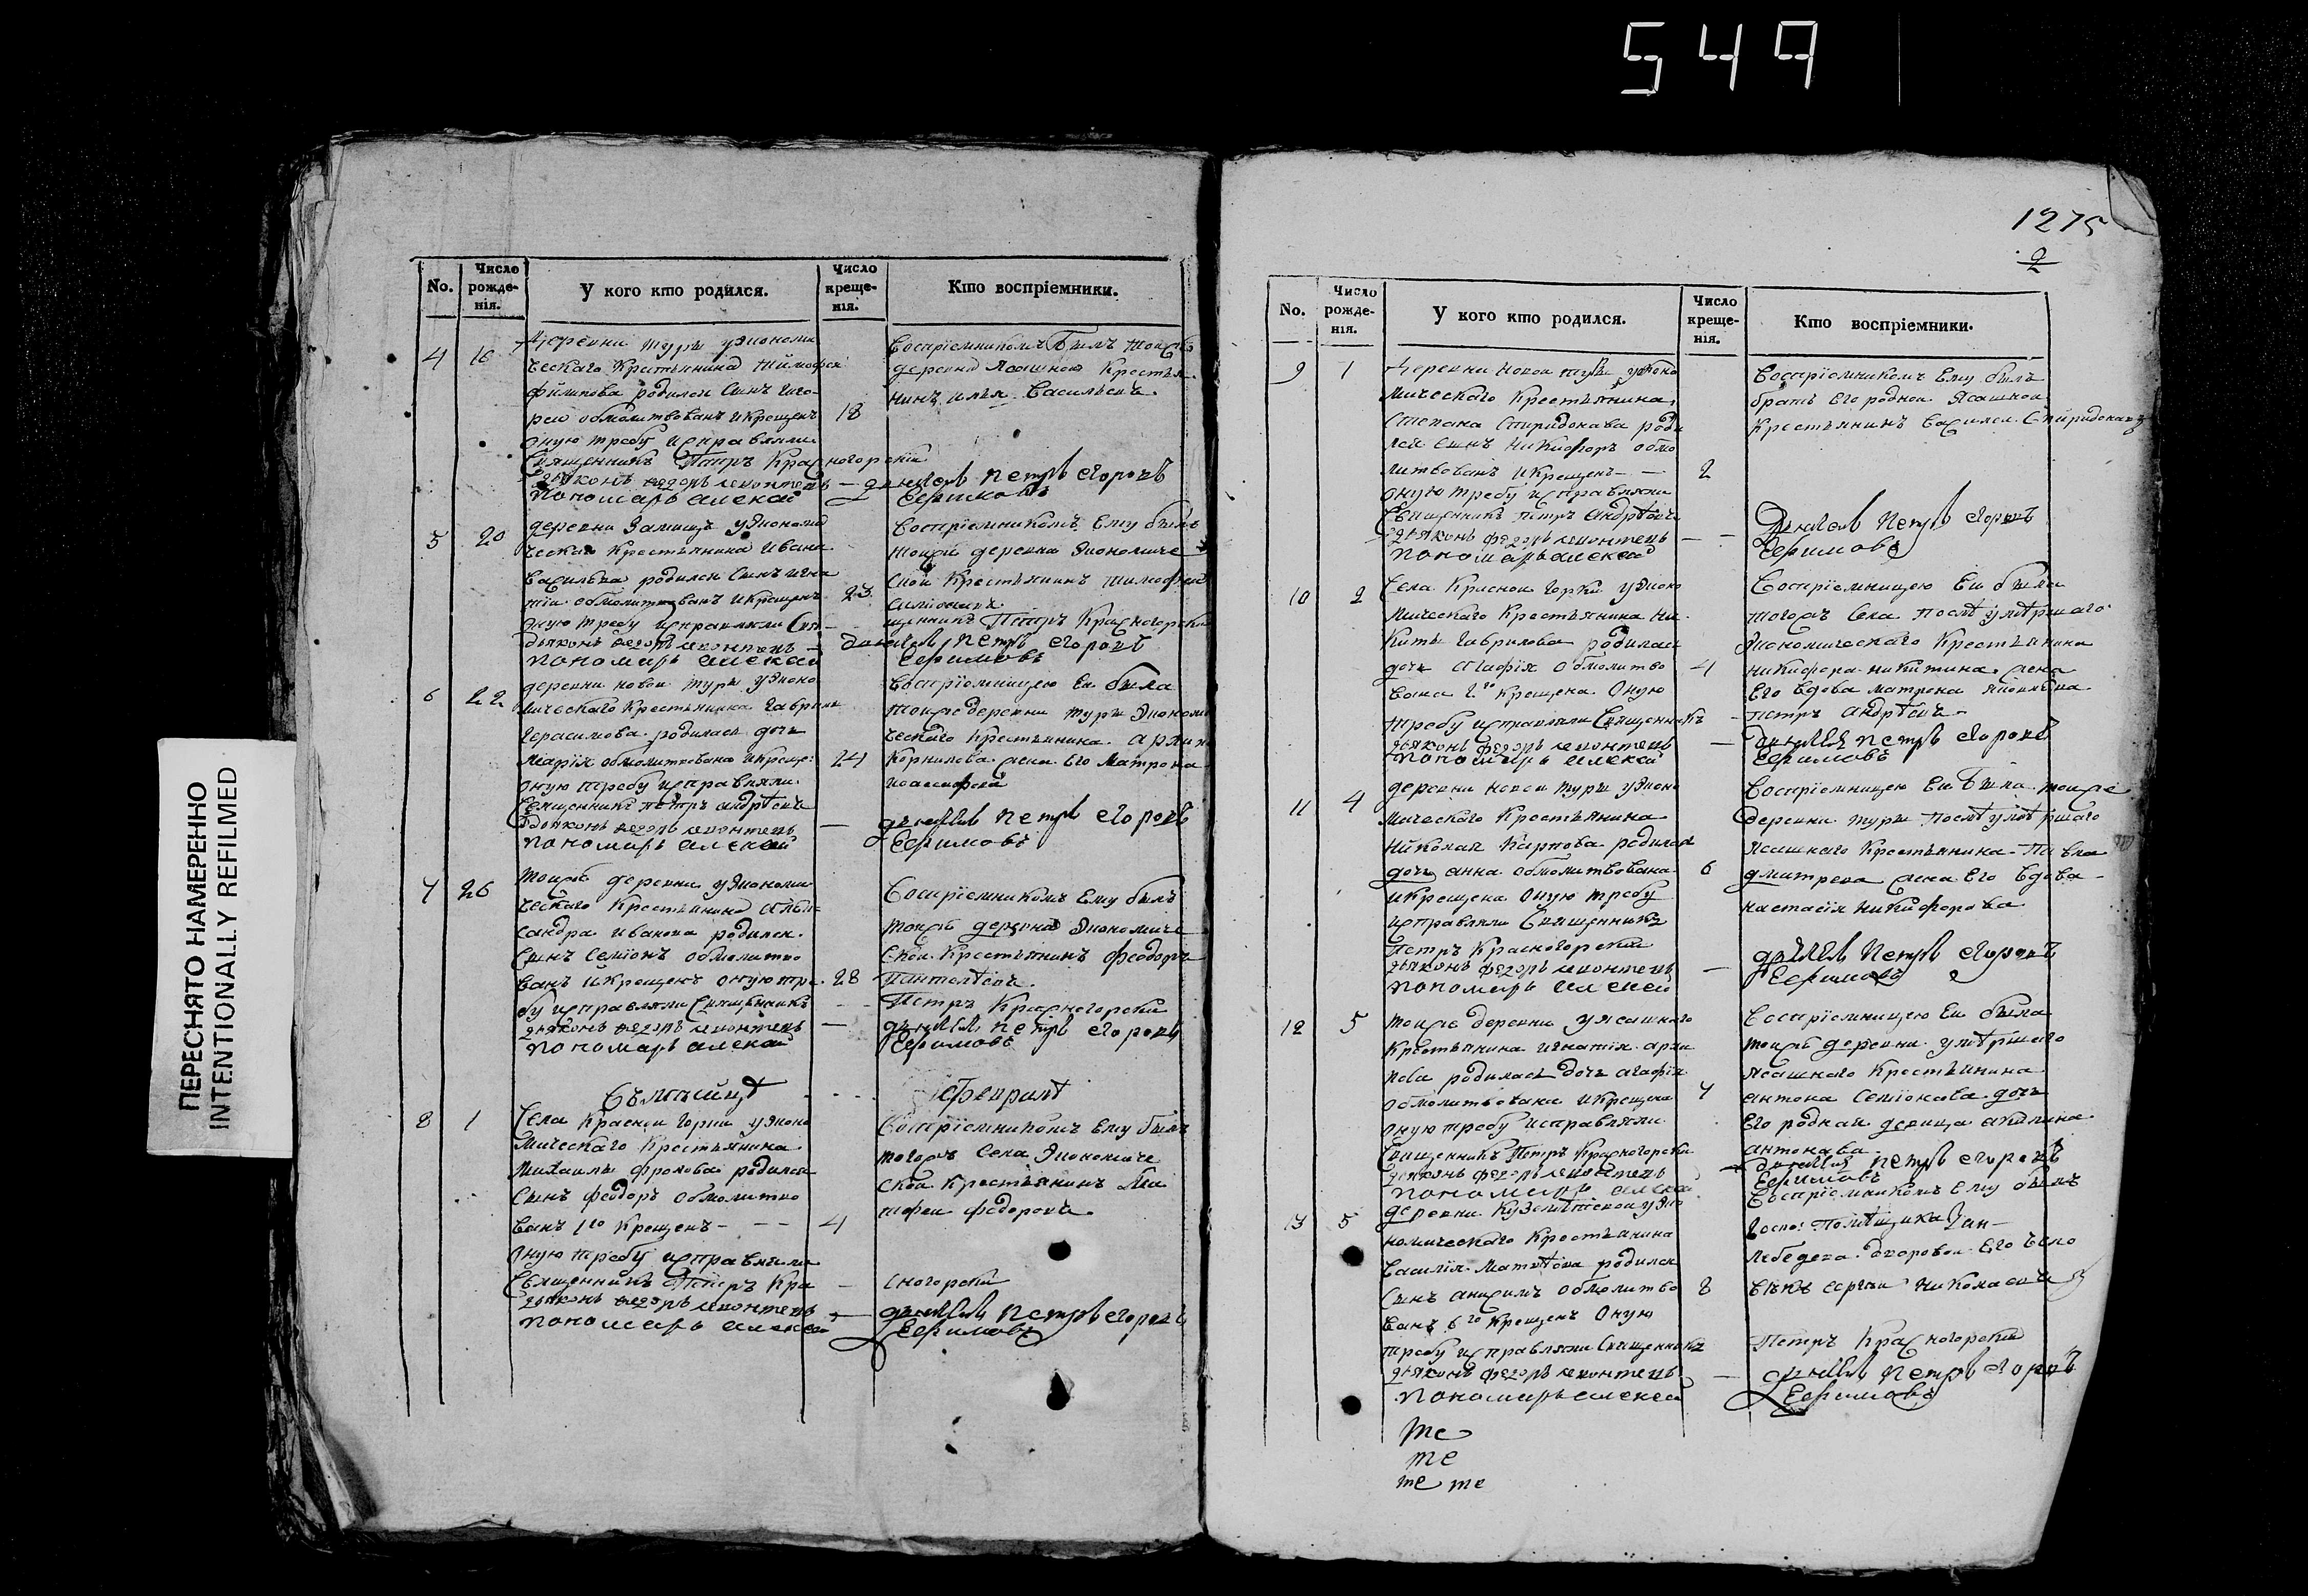 549
ПЕРЕСНЯТО НАМЕРЕННО
INTENTIONALLY REFILMED
No.
Число рожде-нія.
У кого кто родился.
Число креще-нія.
Кто воспріемники.
4 16 Деревни Туры уэкономи
ческаго Крестьянина Тимофея
Филипова родился Сынъ Григо-
реи обмолитвованъ и Крещенъ 18
оную требу исправляли
Священникъ Петръ Красногорскiи
дьяконъ федоръ леонтевъ
пономарь алексаи
Воспрiемникомъ былъ тоиже
деревни Ясашнои Крестья-
нинъ илья Васильевъ.
дьячокъ петръ егоровъ
Ефимовъ
5 20 деревни уэкономи
ческаго Крестьянина Ивана
Васильева родился Сынъ Игна
тiи обмолитвованъ и Крещенъ 23
оную требу исправляли Свя-
щенникъ Петръ Красногорскiи
дьяконъ федоръ леонтевъ
пономарь алексаи
Воспрiемникомъ Ему былъ
тоиже деревни Экономиче
скои Крестьянинъ Тимофеи
дьячокъ петръ егоровъ
Ефимовъ
6 22 деревни новои туры уэконо
мическаго Крестьянина Гаврилы
Герасимова родилась дочь
Марiя обмолитвована и Креще: 24
оную требу исправляли
Священникъ петръ андрѣевъ
дьяконъ федоръ леонтевъ
пономарь алексаи
Воспрiемницею Еи была
тоиже деревни туры Экономи
ческаго Крестьянина
Корнилова жена Его Матрона
дьячокъ петръ егоровъ
Ефимовъ
7 26 тоиже деревни уэкономи
ческаго Крестьянина Алек
сандра Иванова родился
Сынъ Семiонъ обмолитво
ванъ и Крещенъ оную тре- 28
бу исправляли Священникъ
дьяконъ федоръ леонтевъ
пономарь алексаи
Воспрiемникомъ Ему былъ
тоиже деревни Экономиче
скои Крестьянинъ феодоръ
Пантелѣевъ.
Петръ Красногорскiи
дьячокъ петръ егоровъ
Ефимовъ
Въ мѣсяцѣ февралѣ
8 1 Села Краснои Горки уэконо
мическаго Крестьянина
Михаилы Фролова родился
Сынъ Феодоръ обмолитво
ванъ 1го Крещенъ - - - 4
Оную требу исправляли
Священникъ Петръ Кра
дьяконъ федоръ леонтевъ
пономарь алексеи
Воспрiемникомъ Ему былъ
тогожъ Села Экономиче
скои Крестьянинъ
федоровъ.
сногорскiи
дьячокъ петръ егоровъ
Ефимовъ
1275
No.
Число рожде-нія.
У кого кто родился.
Число креще-нія.
Кто воспріемники.
9 1 Деревни Новои туры уэконо
мическаго Крестьянина
Степана Спиридонава роди
лся Сынъ Никифоръ обмо
литвованъ и Крещенъ - - 2
оную требу исправляли
Священникъ петръ андрѣевъ
дьяконъ федоръ леонтевъ
пономарь алексаи
Воспрiемникомъ Ему былъ
братъ Его роднои Ясашнои
Крестьянинъ Василеи Спиридонавъ
дьячокъ петръ егоровъ
Ефимовъ
10 2 Села Краснои Горки уэконо
мическаго Крестьянина Ни
киты Гаврилова родилась
дочь Агафiя обмолитво 4
вана 2го крещена Оную
требу исправляли Священникъ
дьяконъ федоръ леонтевъ
пономарь алексеи
Воспрiемницею Еи была
тогожъ Села послѣ умѣршаго
Экономическаго Крестьянина
Никифора Никитина жена
Его вдова матрона
петръ андрѣевъ
дьячокъ петръ егоровъ
Ефимовъ
11 4 деревни новои туры уэконо
мическаго Крестьянина
Николая Карпова родилась
дочь анна обмолитвована 6
и крещена Оную требу
исправляли Священникъ
Петръ Красногорскiи
дьяконъ федоръ леонтевъ
пономарь алексеи
Воспрiемницею Еи была тоиже
деревни туры послѣ умѣршаго
Ясашнаго Крестьянина Павла
дмитрева жена Его вдова
настасiя никифорова
дьячокъ петръ егоровъ
Ефимовъ
12 5 тоиже деревни у ясашнаго
Крестьянина Игнатiя
родилась дочь агафiя
обмолитвована и Крещена 7
оную требу исправляли
Священникъ Петръ Красногорскiи
дьяконъ федоръ леонтевъ
пономарь алексеи
Воспрiемницею Еи была
тоиже деревни умѣршаго
Ясашнаго Крестьянина
антона Семiонова дочь
Его родная девица акилина
антонава.
дьячокъ петръ егоровъ
Ефимовъ
13 5 деревни уэко
номическаго Крестьянина
Василiя Матвѣева родился
Сынъ анисимъ обмолитво 8
ванъ 6го Крещенъ Оную
требу исправляли Священникъ
дьяконъ федоръ леонтевъ
пономарь алексеи
Воспрiемникомъ Ему былъ
Госпо: Помѣщика
Лебедева дворовои Его чело
вѣкъ Сергеи Николаевъ
Петръ Красногорскiи
дьячокъ петръ егоровъ
Ефимовъ
те
те
те те